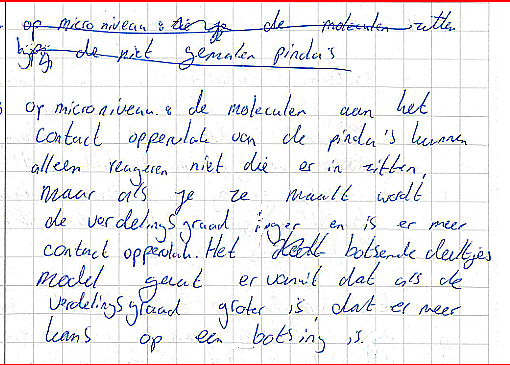 op micro niveau: zie je de moleculen zitten
bij de niet gemalen pinda's
op micro niveau: de moleculen aan het
contact oppervlak van de pinda's kunnen
alleen reageren niet die er in zitten,
maar als je ze maalt wordt
de verdelingsgraad en is er meer
contact oppervlak. Het botsende deeltjes
model gaat er vanuit dat als de
verdelingsgraad groter is, dat er meer
kans op een botsing is.